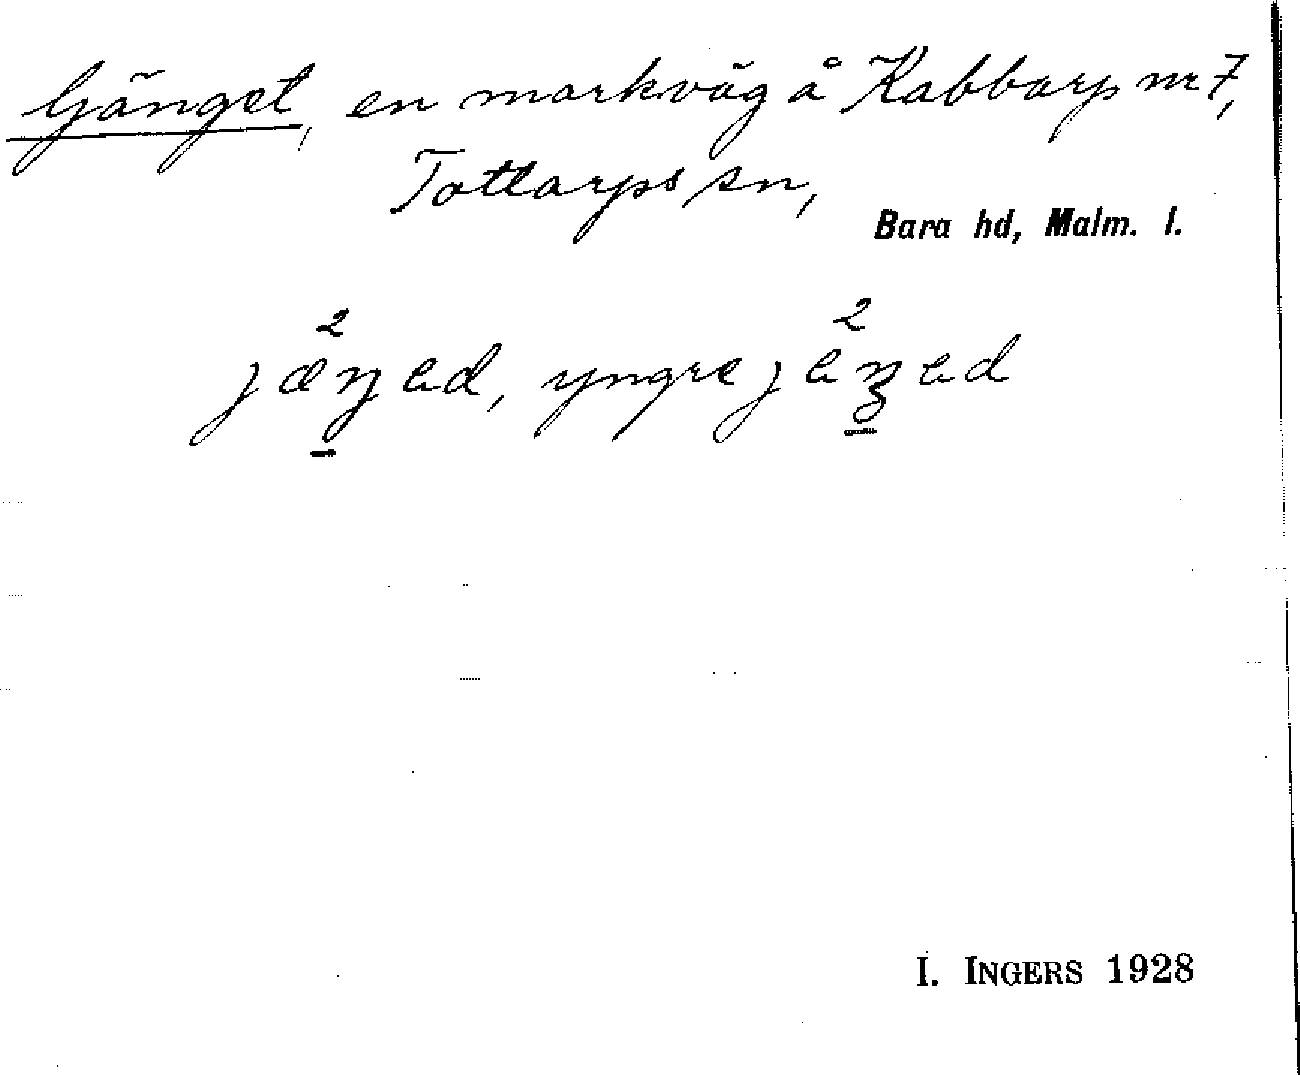 Gänget, en markväg å Kabbarp nr 7,
Tottarps sn,
Bara hd, Malm. l.
jæ²ŋad, yngre je²ŋad
I. INGERS 1928